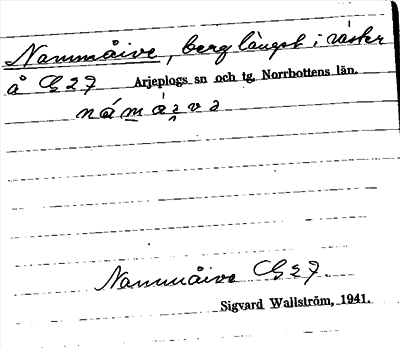 Nammåive, berg längst i väster
å C 27 Arjeplogs sn och tg, Norrbottens län.
Nammåive C 27.
Sigvard Wallström, 1941.